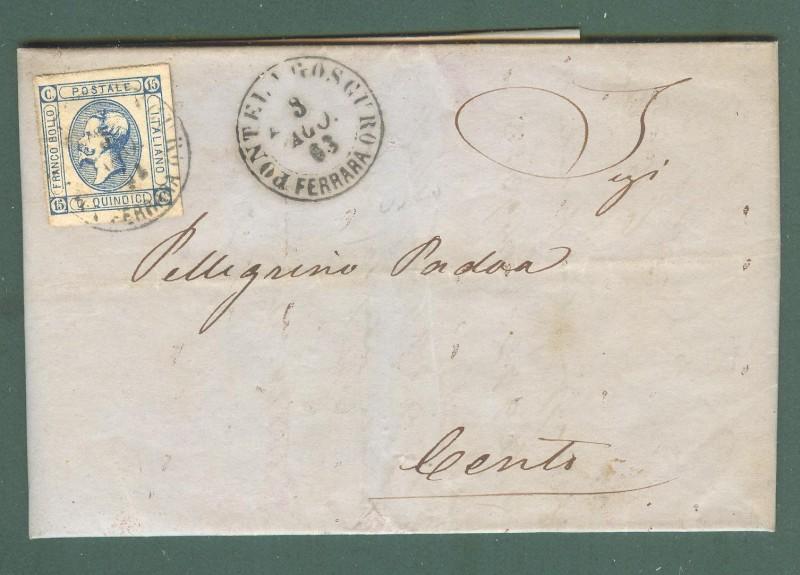 FRANCO BOLLO
C. POSTALE 15
ITALIANO
15 C. QUINDICI C.
PONTELAGOSCURO
8
AGO.
63
FERRARA
Pellegrino Padoa
Cento